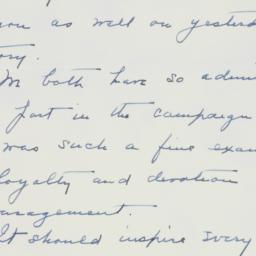 as well on yesterd
ory.
We both have so admi
part in the campaign
was such a fine exam
loyalty and devotion
anagement.
It should inspire every